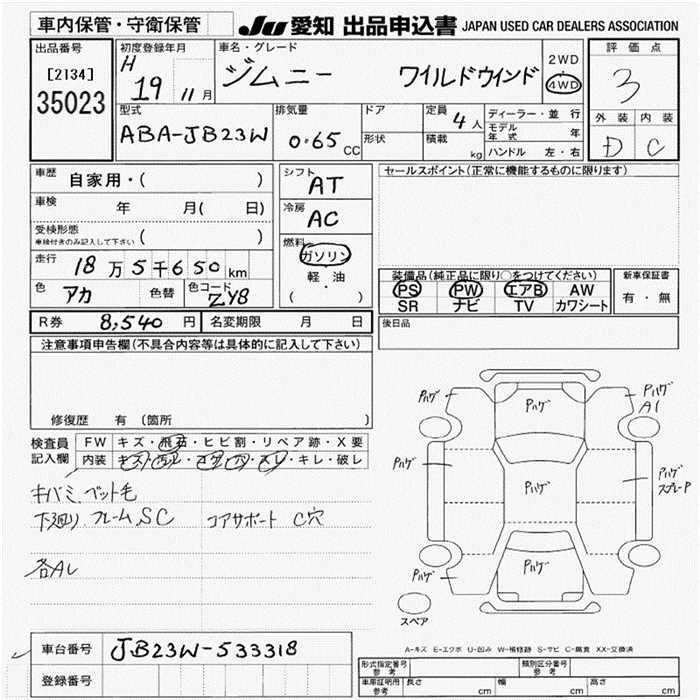 車内保管・守衛保管
JU 愛知 出品申込書 JAPAN USED CAR DEALERS ASSOCIATION
出品番号
[2134]
35023
初度登録年月
H 19 11月
車名・グレード
ジムニー ワイルドウインド
2WD
4WD
評価点
3
外装 内装
D C
型式
ABA-JB23W
排気量
0.65 CC
ドア
形状
定員 4人
積載 kg
ディーラー・並行
モデル年式 年
ハンドル 左・右
車歴 自家用・( )
車検 年 月( 日)
受検形態
車検付きのみ記入して下さい ( )
走行 18万5千650km
色 アカ 色替 色コード ZY8
シフト AT
冷房 AC
燃料
ガソリン
軽・油
( )
セールスポイント(正常に機能するものに限ります)
装備品(純正品に限り○をつけてください)
PS PW エアB AW
SR ナビ TV カワシート
新車保証書
有・無
R券 8,540円 名変期限 月 日
後日品
注意事項申告欄(不具合内容等は具体的に記入して下さい)
修復歴 有 (箇所 )
検査員記入欄
FW キズ・飛石・ヒビ割・リペア跡・X要
内装
キレ・破レ
キバミ ペット毛
下廻り フレームSC コアサポート C穴
各AL
Pハゲ
Pハゲ
Pハゲ
A1
Pハゲ
Pハゲ
Pハゲ
スプレーP
Pハゲ
Pハゲ
スペア
A-キズ E-エクボ U-凹み W-補修跡 S-サビ C-腐食 XX-交換済
車台番号 JB23W-533318
登録番号
形式指定番号 参考
類別区分番号 参考
車庫証明用 参考 長さ cm 幅 cm 高さ cm